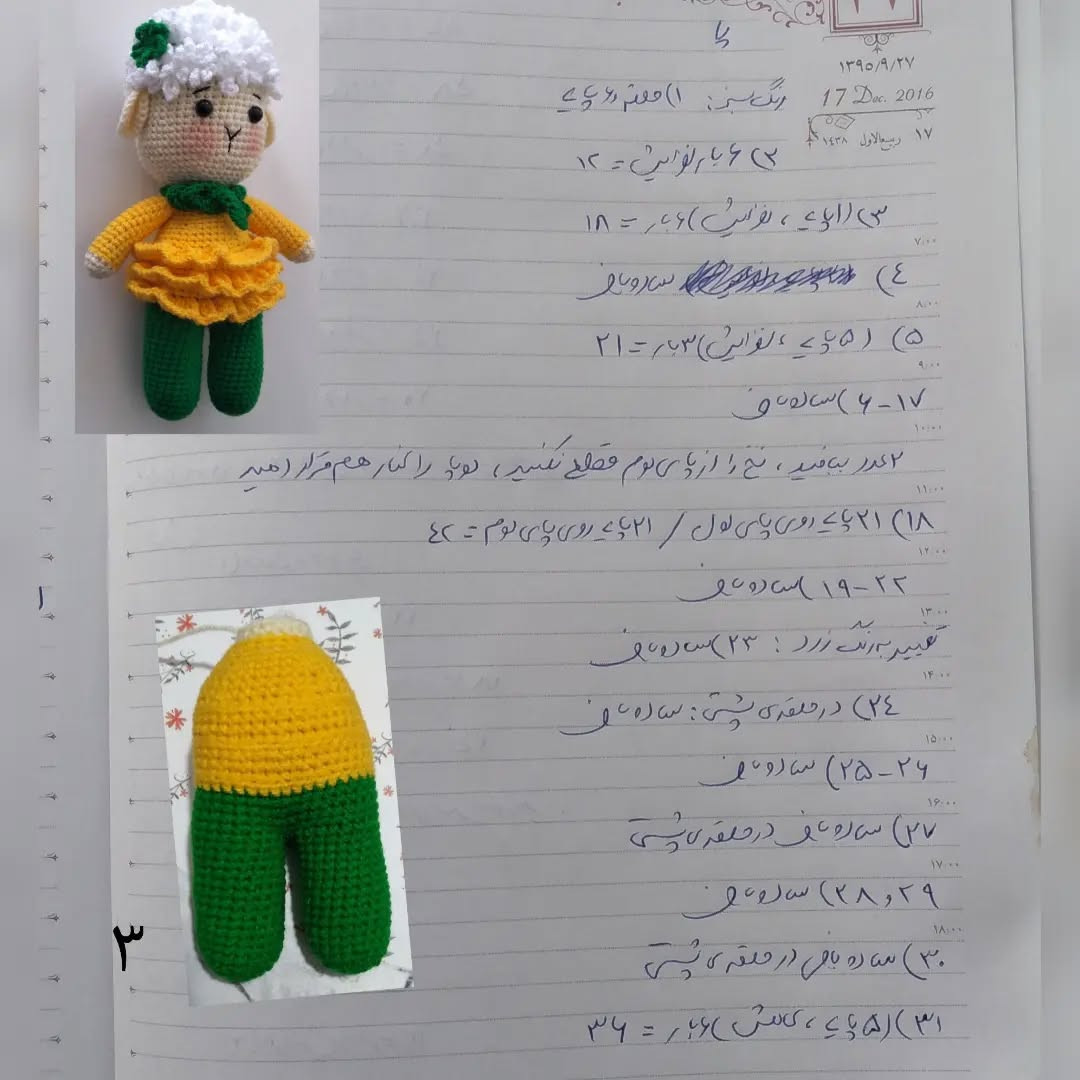 ۲۷
۱۳۹۵/۹/۲۷
17 Dec. 2016
۱۷ ربیع‌الاول ۱۴۳۸
پا
رنگ سبز: ۱) حلقه و ۶ پایه
۲) ۶ بار افزایش = ۱۲
۳) (۱ پایه، افزایش) ۶ بار = ۱۸
۷:۰۰
۴) ساده بافی
۸:۰۰
۵) (۵ پایه، افزایش) ۳ بار = ۲۱
۹:۰۰
۶-۱۷) ساده بافی
۱۰:۰۰
۲ عدد ببافید، نخ را از پای دوم قطع نکنید، دو پا را کنار هم قرار دهید
۱۱:۰۰
۱۸) ۲۱ پایه روی پای اول / ۲۱ پایه روی پای دوم = ۴۲
۱۲:۰۰
۱۹-۲۲) ساده بافی
۱۳:۰۰
تغییر به رنگ زرد: ۲۳) ساده بافی
۱۴:۰۰
۲۴) در حلقه‌ی پشتی: ساده بافی
۱۵:۰۰
۲۵-۲۶) ساده بافی
۱۶:۰۰
۲۷) ساده بافی در حلقه‌ی پشتی
۱۷:۰۰
۲۸ و ۲۹) ساده بافی
۱۸:۰۰
۳۰) ساده بافی در حلقه‌ی پشتی
۳۱) (۵ پایه، کاهش) ۶ بار = ۳۶
۳